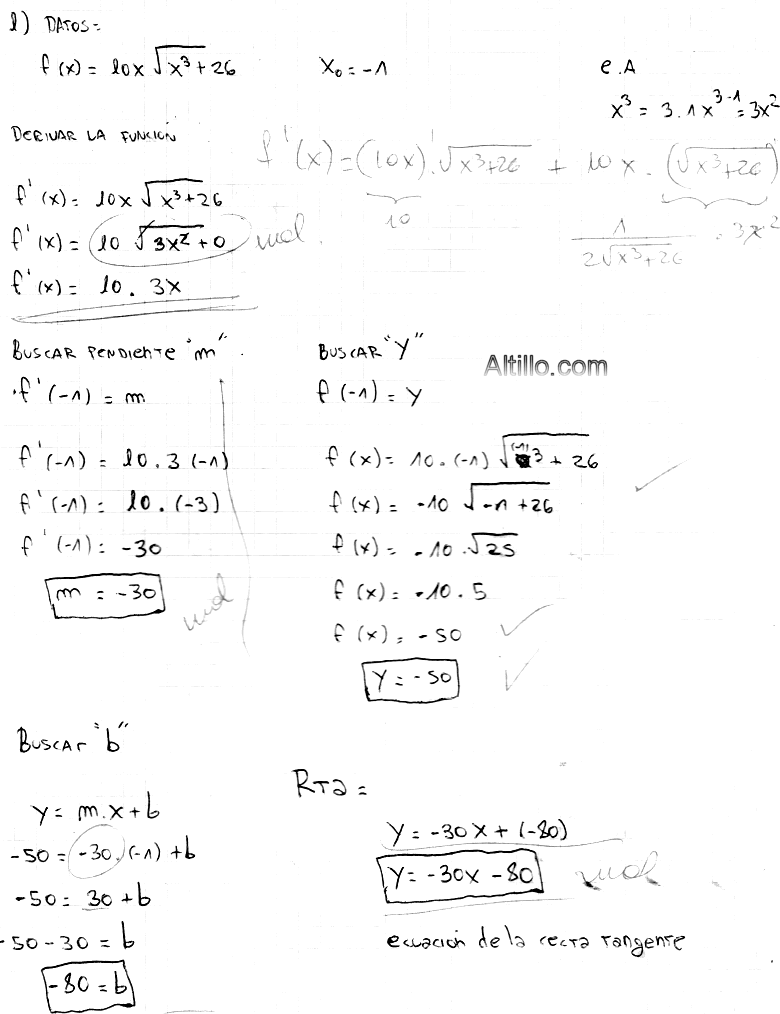 1) DATOS=
f(x) = 10x √x³+26
X₀ = -1
e.A
x³ = 3.1x³⁻¹ = 3x²
DERIVAR LA FUNCIÓN
f'(x) = (10x)'.√x³+26 + 10x.(√x³+26)'
10
1/2√x³+26 . 3x²
f'(x) = 10x √x³+26
f'(x) = 10 √3x²+0 mal.
f'(x) = 10 . 3x
BUSCAR PENDIENTE "m".
f'(-1) = m
f'(-1) = 10.3(-1)
f'(-1) = 10.(-3)
f'(-1) = -30
m = -30
mal
BUSCAR "Y"
Altillo.com
f(-1) = Y
f(x) = 10.(-1) √(-1)³+26
f(x) = -10 √-1+26
f(x) = -10.√25
f(x) = -10.5
f(x) = -50
Y = -50
BUSCAR "b"
Y = m.x+b
-50 = -30.(-1)+b
-50 = 30+b
-50-30 = b
-80 = b
RTA =
Y = -30X + (-80)
Y = -30X - 80 mal
ecuación de la recta tangente